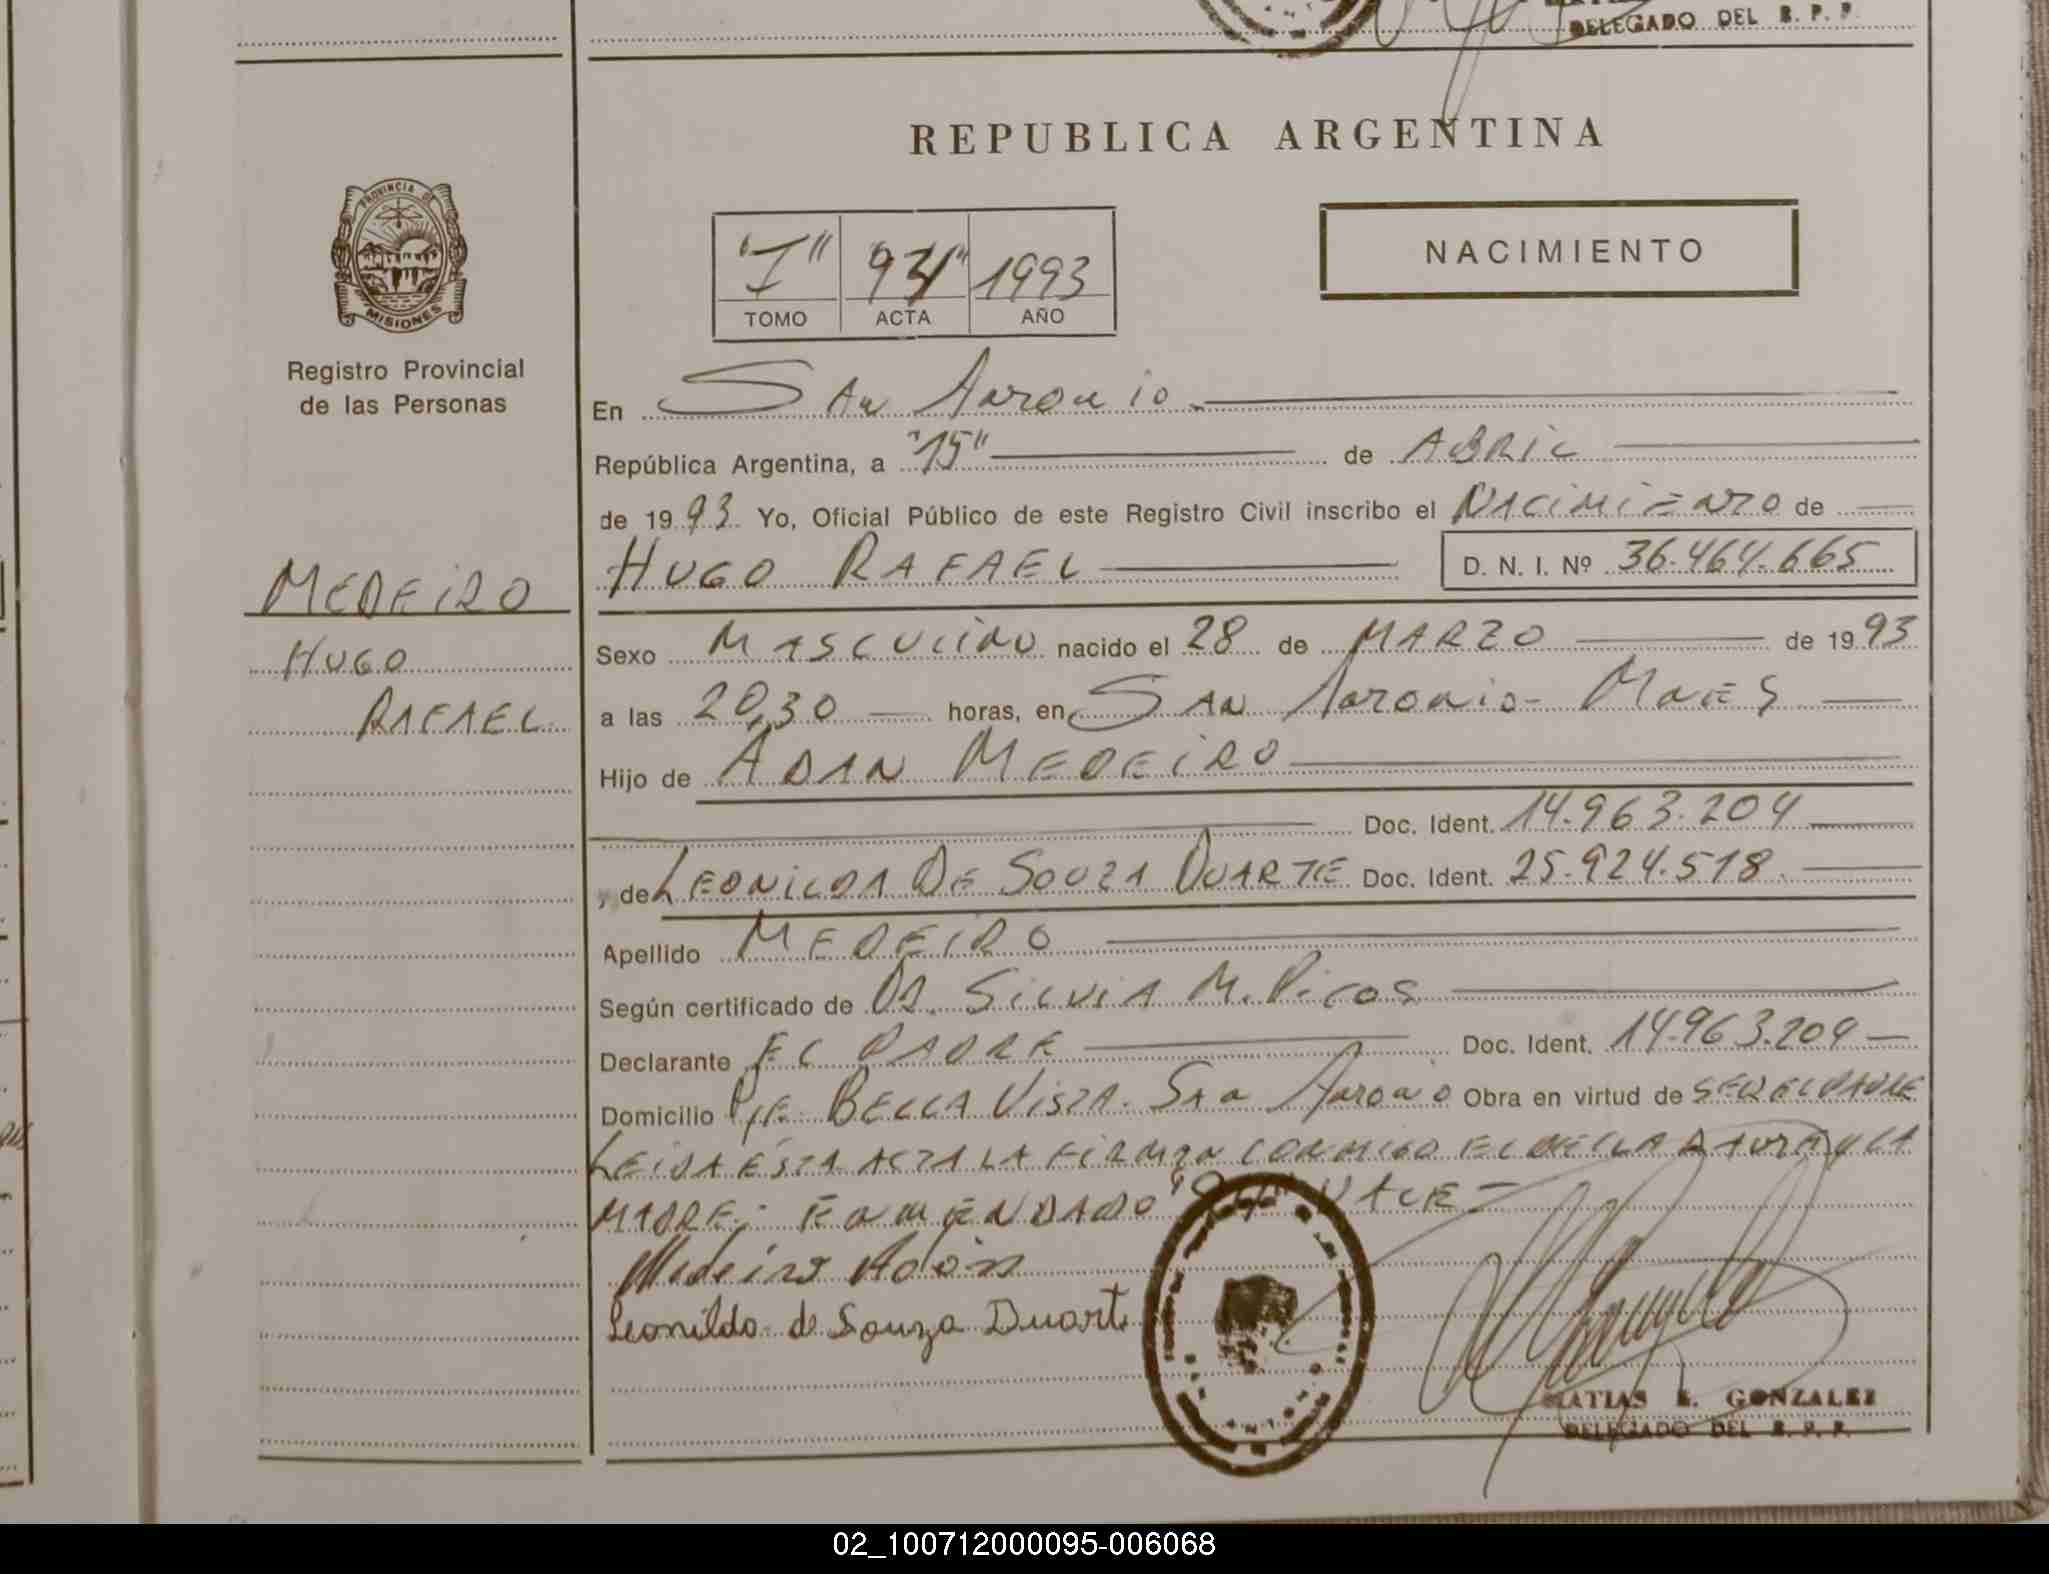 DELEGADO DEL R. P. P.
REPUBLICA ARGENTINA
PROVINCIA DE
MISIONES
"I"
1993
NACIMIENTO
TOMO ACTA AÑO
Registro Provincial
de las Personas
En San Antonio
República Argentina, a "15" de ABRIL
de 1993 Yo, Oficial Público de este Registro Civil inscribo el NACIMIENTO de
HUGO RAFAEL D. N. I. Nº 36.464.665
MEDEIRO
HUGO
RAFAEL
Sexo MASCULINO nacido el 28 de MARZO de 1993
a las 20,30 horas, en SAN ANTONIO - MNES
Hijo de ADAN MEDEIRO
Doc. Ident. 14.963.204
, de LEONILDA DE SOUZA DUARTE Doc. Ident. 25.924.518
Apellido MEDEIRO
Según certificado de DA. SILVIA M. PICOS
Declarante EL PADRE Doc. Ident. 14.963.204
Domicilio Pje. BELLA VISTA. San Antonio Obra en virtud de SER EL PADRE
LEIDA ESTA ACTA LA FIRMAN CONMIGO EL DECLARANTE Y LA
MADRE: ENMENDADO VALE-
Medeiro Adán
Leonilda de Souza Duarte
MATIAS E. GONZALEZ
DELEGADO DEL R. P. P.
02_100712000095-006068